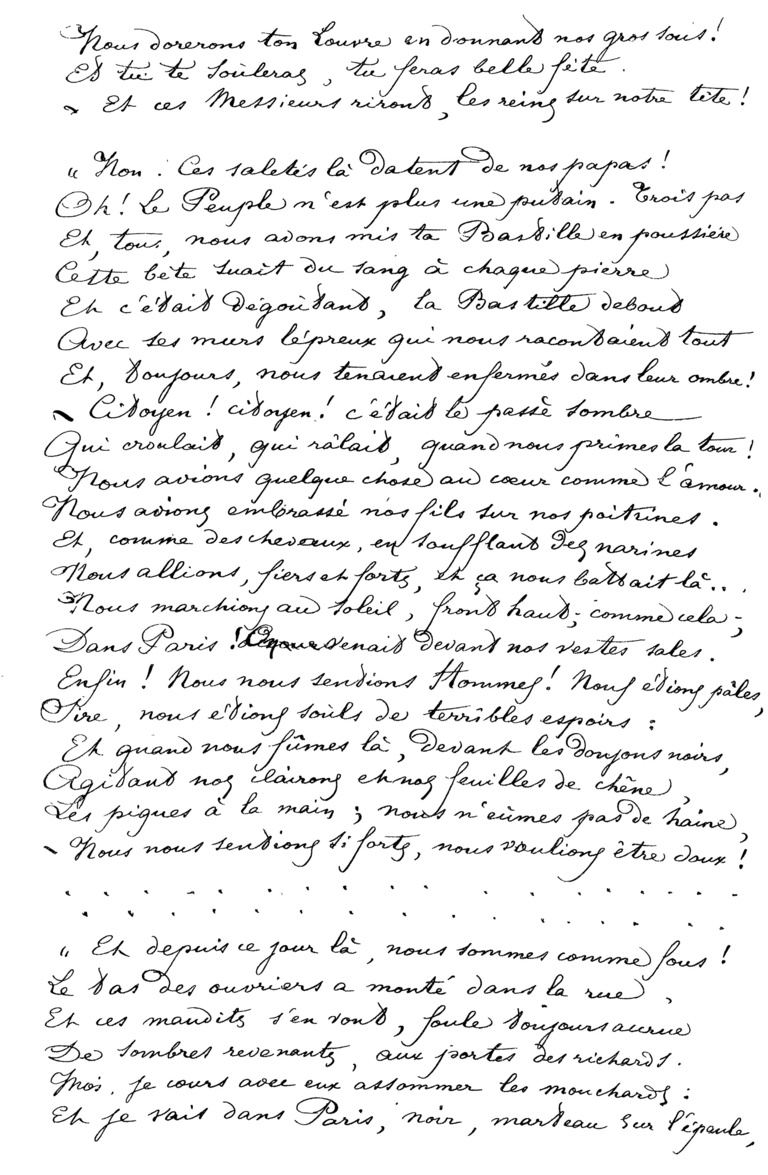 Nous dorerons ton Louvre en donnant nos gros sous!
Et tu te soûleras, tu feras belle fête.
- Et ces Messieurs riront, les reins sur notre tête!
"Non. Ces saletés là datent de nos papas!
Oh! Le Peuple n'est plus une putain. Trois pas
Et, tous, nous avons mis ta Bastille en poussière
Cette bête suait du sang à chaque pierre
Et c'était dégoûtant, la Bastille debout
Avec ses murs lépreux qui nous racontaient tout
Et, toujours, nous tenaient enfermés dans leur ombre!
- Citoyen! citoyen! c'était le passé sombre
Qui croulait, qui râlait, quand nous primes la tour!
Nous avions quelque chose au cœur comme l'amour.
Nous avions embrassé nos fils sur nos poitrines.
Et, comme des chevaux, en soufflant des narines
Nous allions, fiers et forts, et ça nous battait là...
Nous marchions au soleil, front haut; comme cela;
Dans Paris! venait devant nos vestes sales.
Enfin! Nous nous sentions Hommes! Nous étions pâles,
Sire, nous étions soûls de terribles espoirs:
Et quand nous fûmes là, devant les donjons noirs,
Agitant nos clairons et nos feuilles de chêne,
Les piques à la main; nous n'eûmes pas de haine,
- Nous nous sentions si forts, nous voulions être doux!
. . . . . . . . . . . . . . . . . .
. . . . . . . . . . . . . . . . . .
"Et depuis ce jour là, nous sommes comme fous!
Le tas des ouvriers a monté dans la rue,
Et ces maudits s'en vont, foule toujours accrue
De sombres revenants, aux portes des richards.
Moi, je cours avec eux assommer les mouchards:
Et je vais dans Paris, noir, marteau sur l'épaule,